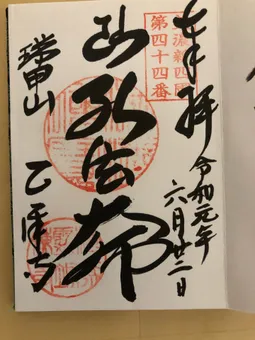 奉拝
令和元年
六月廿二日
美濃新四国
第四十四番
弘法大師
瑞甲山
乙津寺